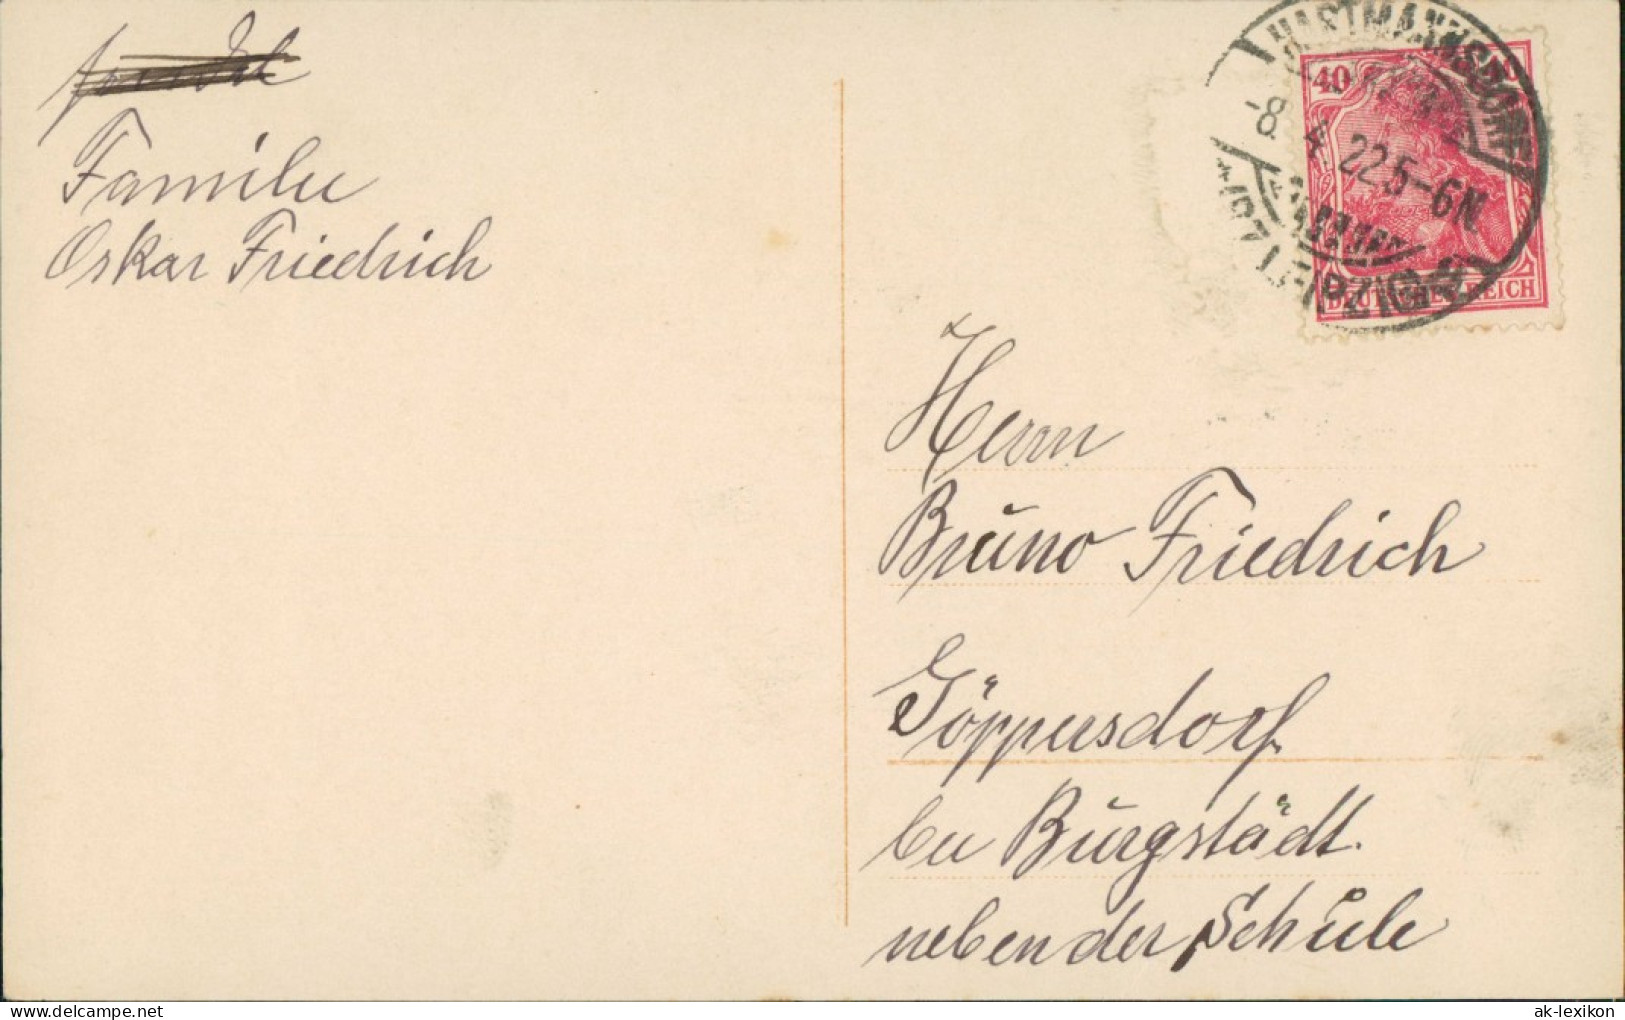 Familie
Oskar Friedrich
HARTMANNSDORF
-8. 4. 22 5-6N
40 40
DEUTSCHES REICH
Herrn
Bruno Friedrich
Göppersdorf
bei Burgstädt.
neben der Schule
delcampe.net
ak-lexikon